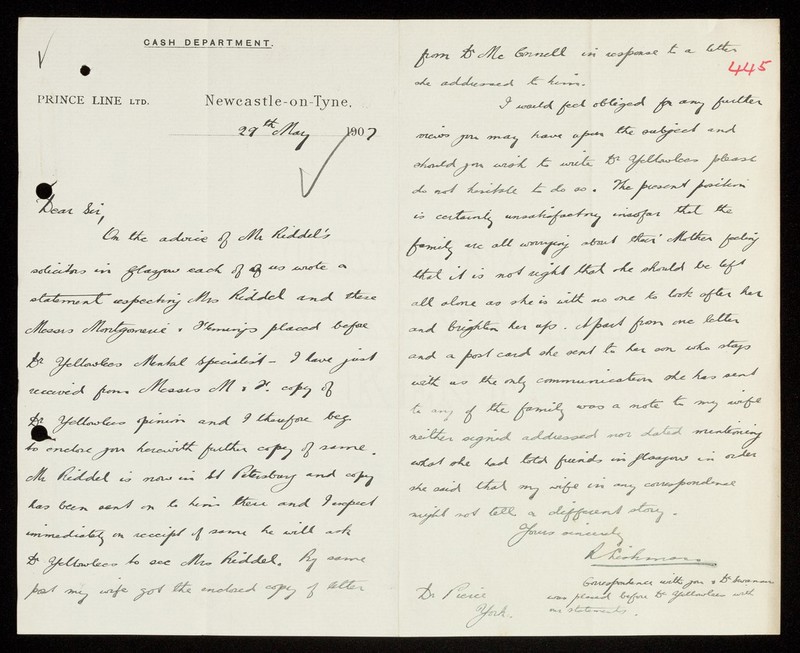 CASH DEPARTMENT.
PRINCE LINE LTD. Newcastle-on-Tyne,
29th May 1907
Dear Sir,
On the advice of Mr Riddel's
solicitors in Glasgow each of us wrote a
statement respecting Mrs Riddel and these
Messrs Montgomerie & Flemings placed before
Dr Yellowlees Mental Specialist – I have just
received from Messrs M & F. copy of
Dr Yellowlees opinion and I therefore beg
to enclose you herewith further copy of same.
Mr Riddel is now in St Petersburg and copy
has been sent on to him there and I expect
immediately on receipt of same he will ask
Dr Yellowlees to see Mrs Riddel. By same
post my wife got the enclosed copy of letter
445
from Dr Mc Connell in response to a letter
she addressed to him.
I would feel obliged for any further
views you may have upon the subject and
should you wish to write Dr Yellowlees please
do not hesitate to do so. The present position
is certainly unsatisfactory insofar that the
family are all worrying about their Mother feeling
that it is not right that she should be left
all alone as she is with no one to look after her
and brighten her up. Apart from one letter
and a post card she sent to her son who stays
with us the only communication she has sent
to any of the family was a note to my wife
neither signed addressed nor dated mentioning
what she had told friends in Glasgow in order
she said that my wife in any correspondence
might not tell a different story.
Yours sincerely
R Leishman
Dr Pierce
York.
Correspondence with you & Dr
was placed before Dr Yellowlees with
our statements.